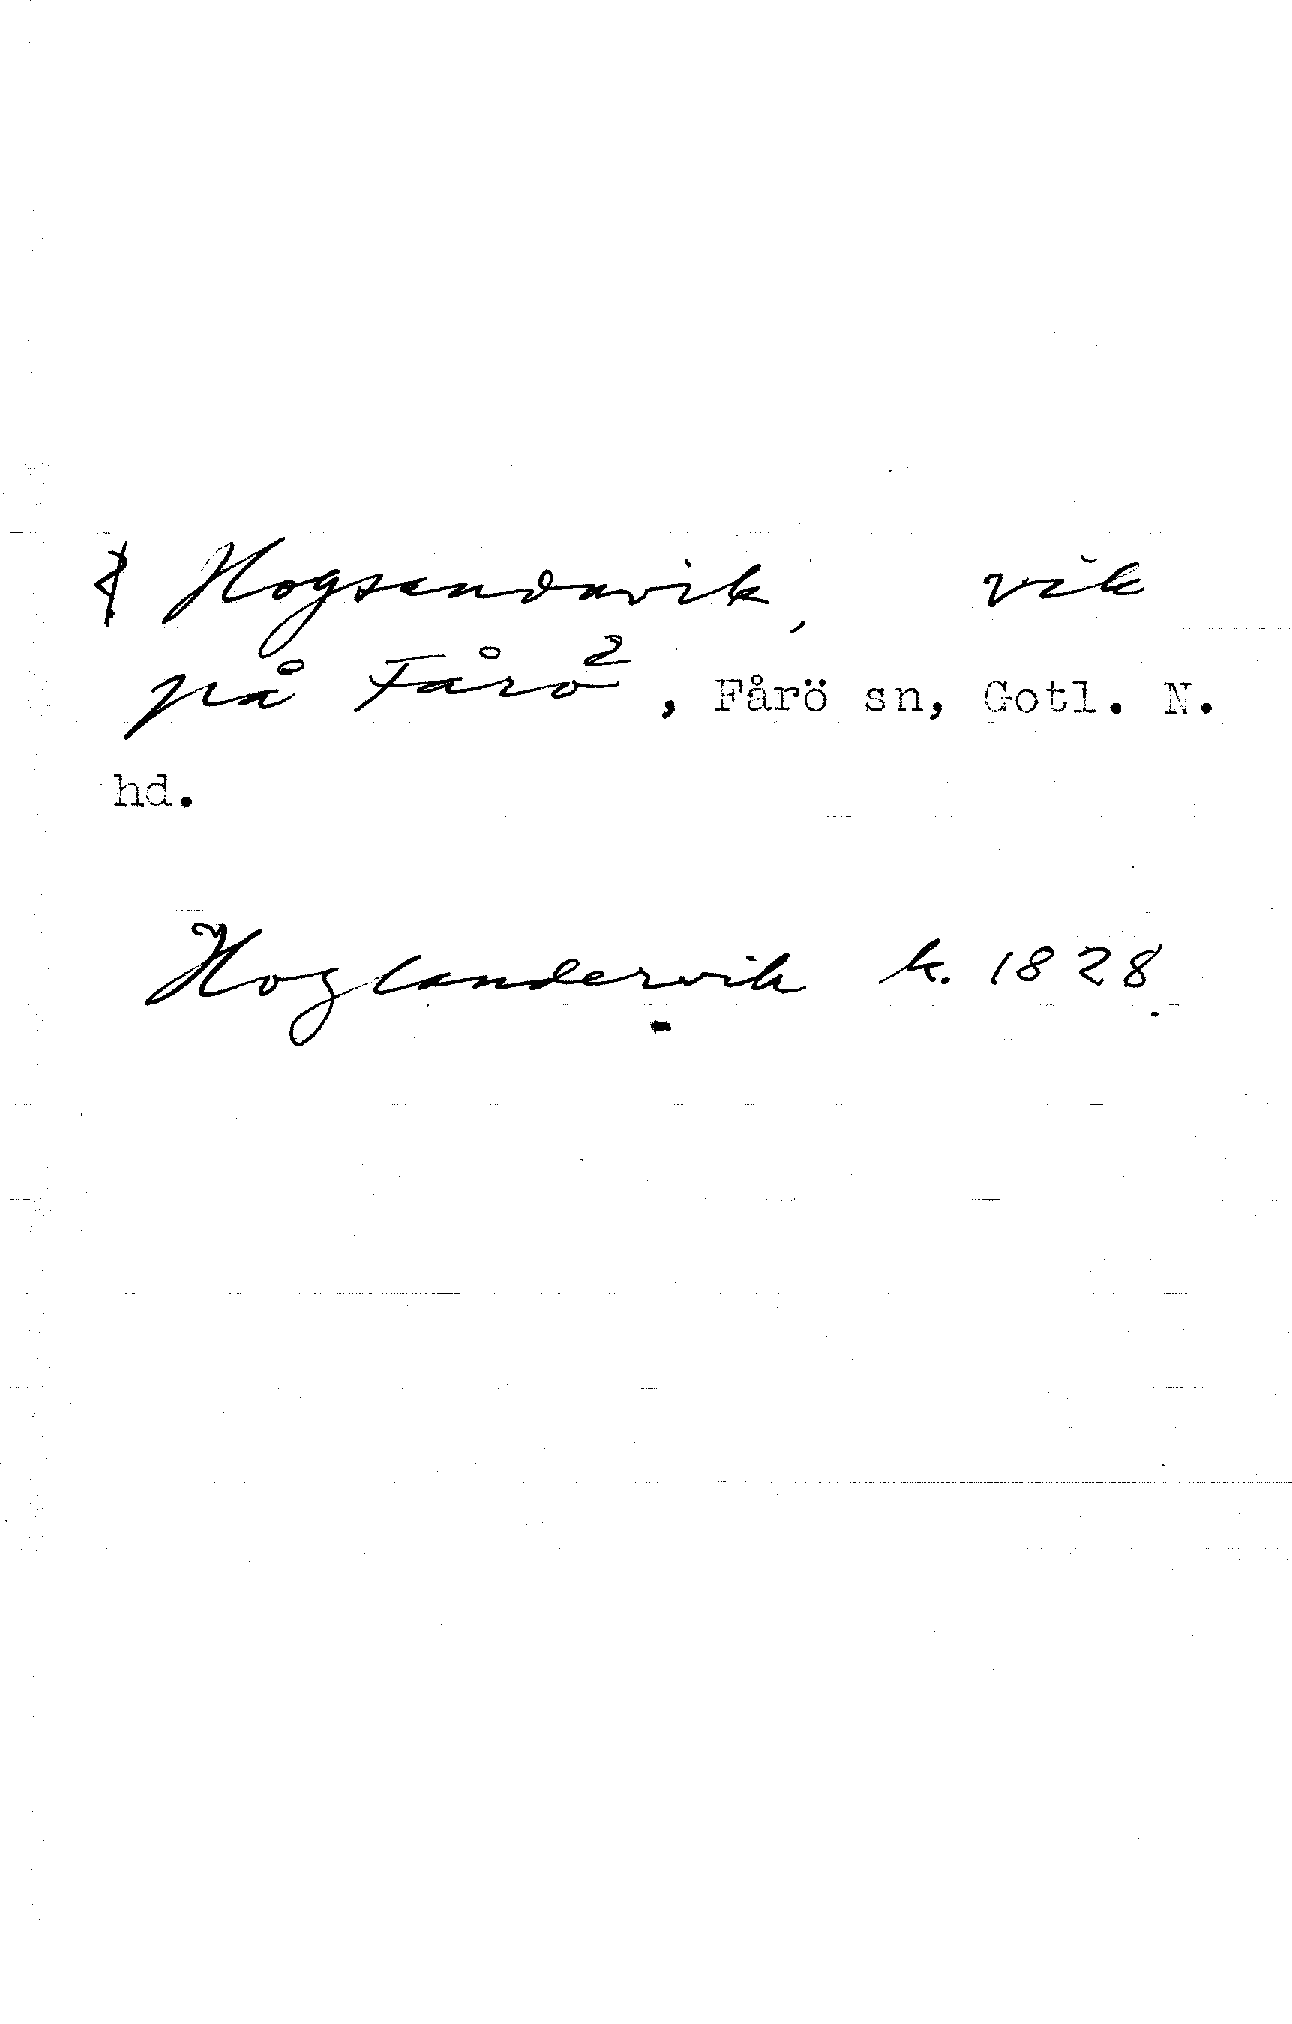 Hogsandavik, vik
på Fårö, Fårö sn, Gotl. N.
hd.
Hoglandervik k. 1828